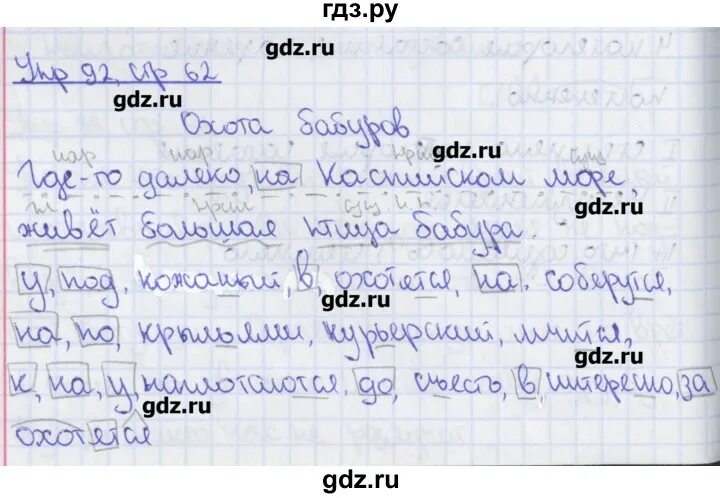 гдз.ру
gdz.ru
Упр 92, стр 62
gdz.ru
Охота бабуров
нар нар прил сущ
gdz.ru
Где-то далеко, на Каспийском море,
гл прил сущ
gdz.ru
живёт большая птица бабура.
у, под, кожаный, в, охотятся, на, соберутся,
gdz.ru
на, по, крыльями, курьерский, мчится,
gdz.ru
к, на, у, наглотаются, до, съесть, в, интересно, за
gdz.ru
охотятся
gdz.ru